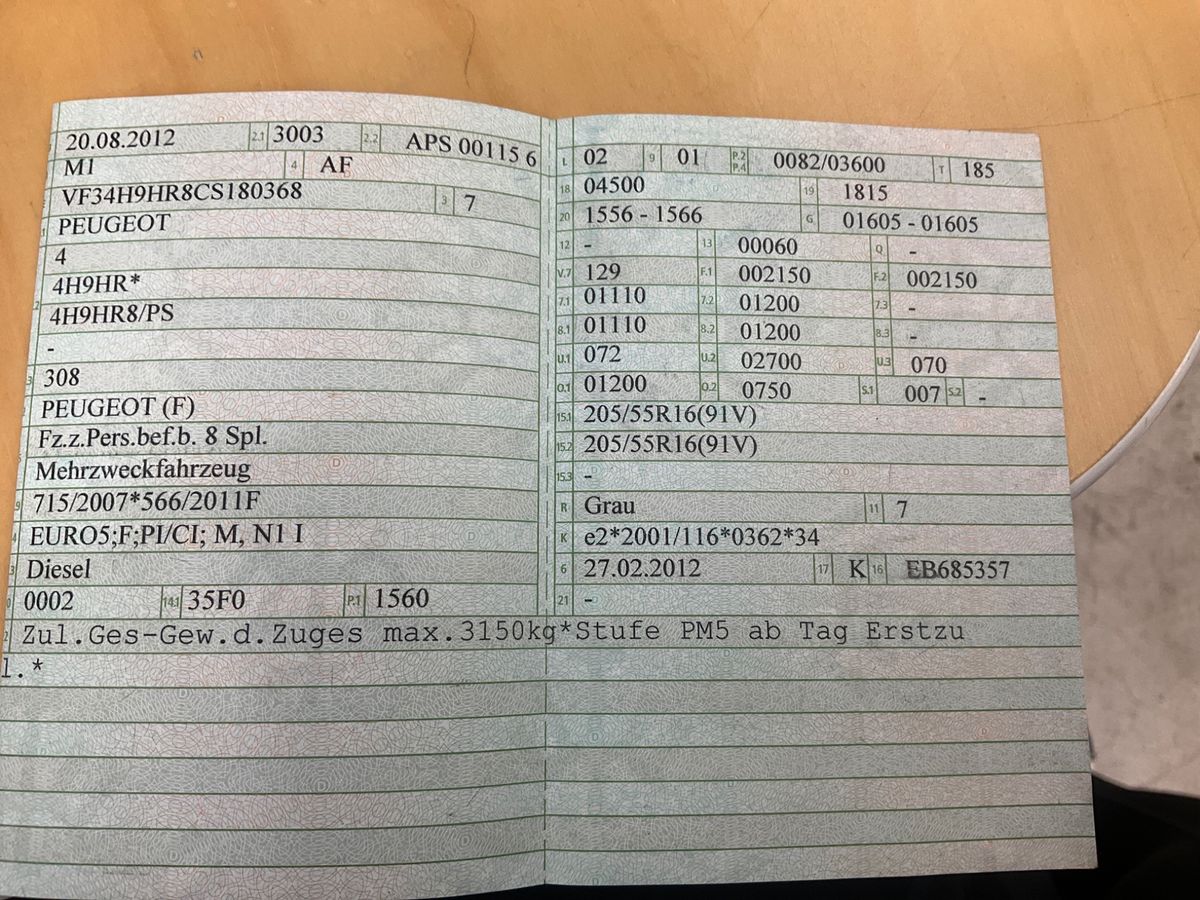 20.08.2012 2.1 3003 2.2 APS 00115 6
M1 4 AF
VF34H9HR8CS180368 3 7
PEUGEOT
4
4H9HR*
4H9HR8/PS
-
308
PEUGEOT (F)
Fz.z.Pers.bef.b. 8 Spl.
Mehrzweckfahrzeug
715/2007*566/2011F
EURO5;F;PI/CI; M, N1 I
Diesel
0002 14.1 35F0 P.1 1560
L 02 9 01 P.2 P.4 0082/03600 T 185
18 04500 19 1815
20 1556 - 1566 G 01605 - 01605
12 - 13 00060 Q -
V.7 129 F.1 002150 F.2 002150
7.1 01110 7.2 01200 7.3 -
8.1 01110 8.2 01200 8.3 -
U.1 072 U.2 02700 U.3 070
O.1 01200 O.2 0750 S.1 007 S.2 -
15.1 205/55R16(91V)
15.2 205/55R16(91V)
15.3 -
R Grau 11 7
K e2*2001/116*0362*34
6 27.02.2012 17 K 16 EB685357
21 -
Zul.Ges-Gew.d.Zuges max.3150kg*Stufe PM5 ab Tag Erstzu
l.*